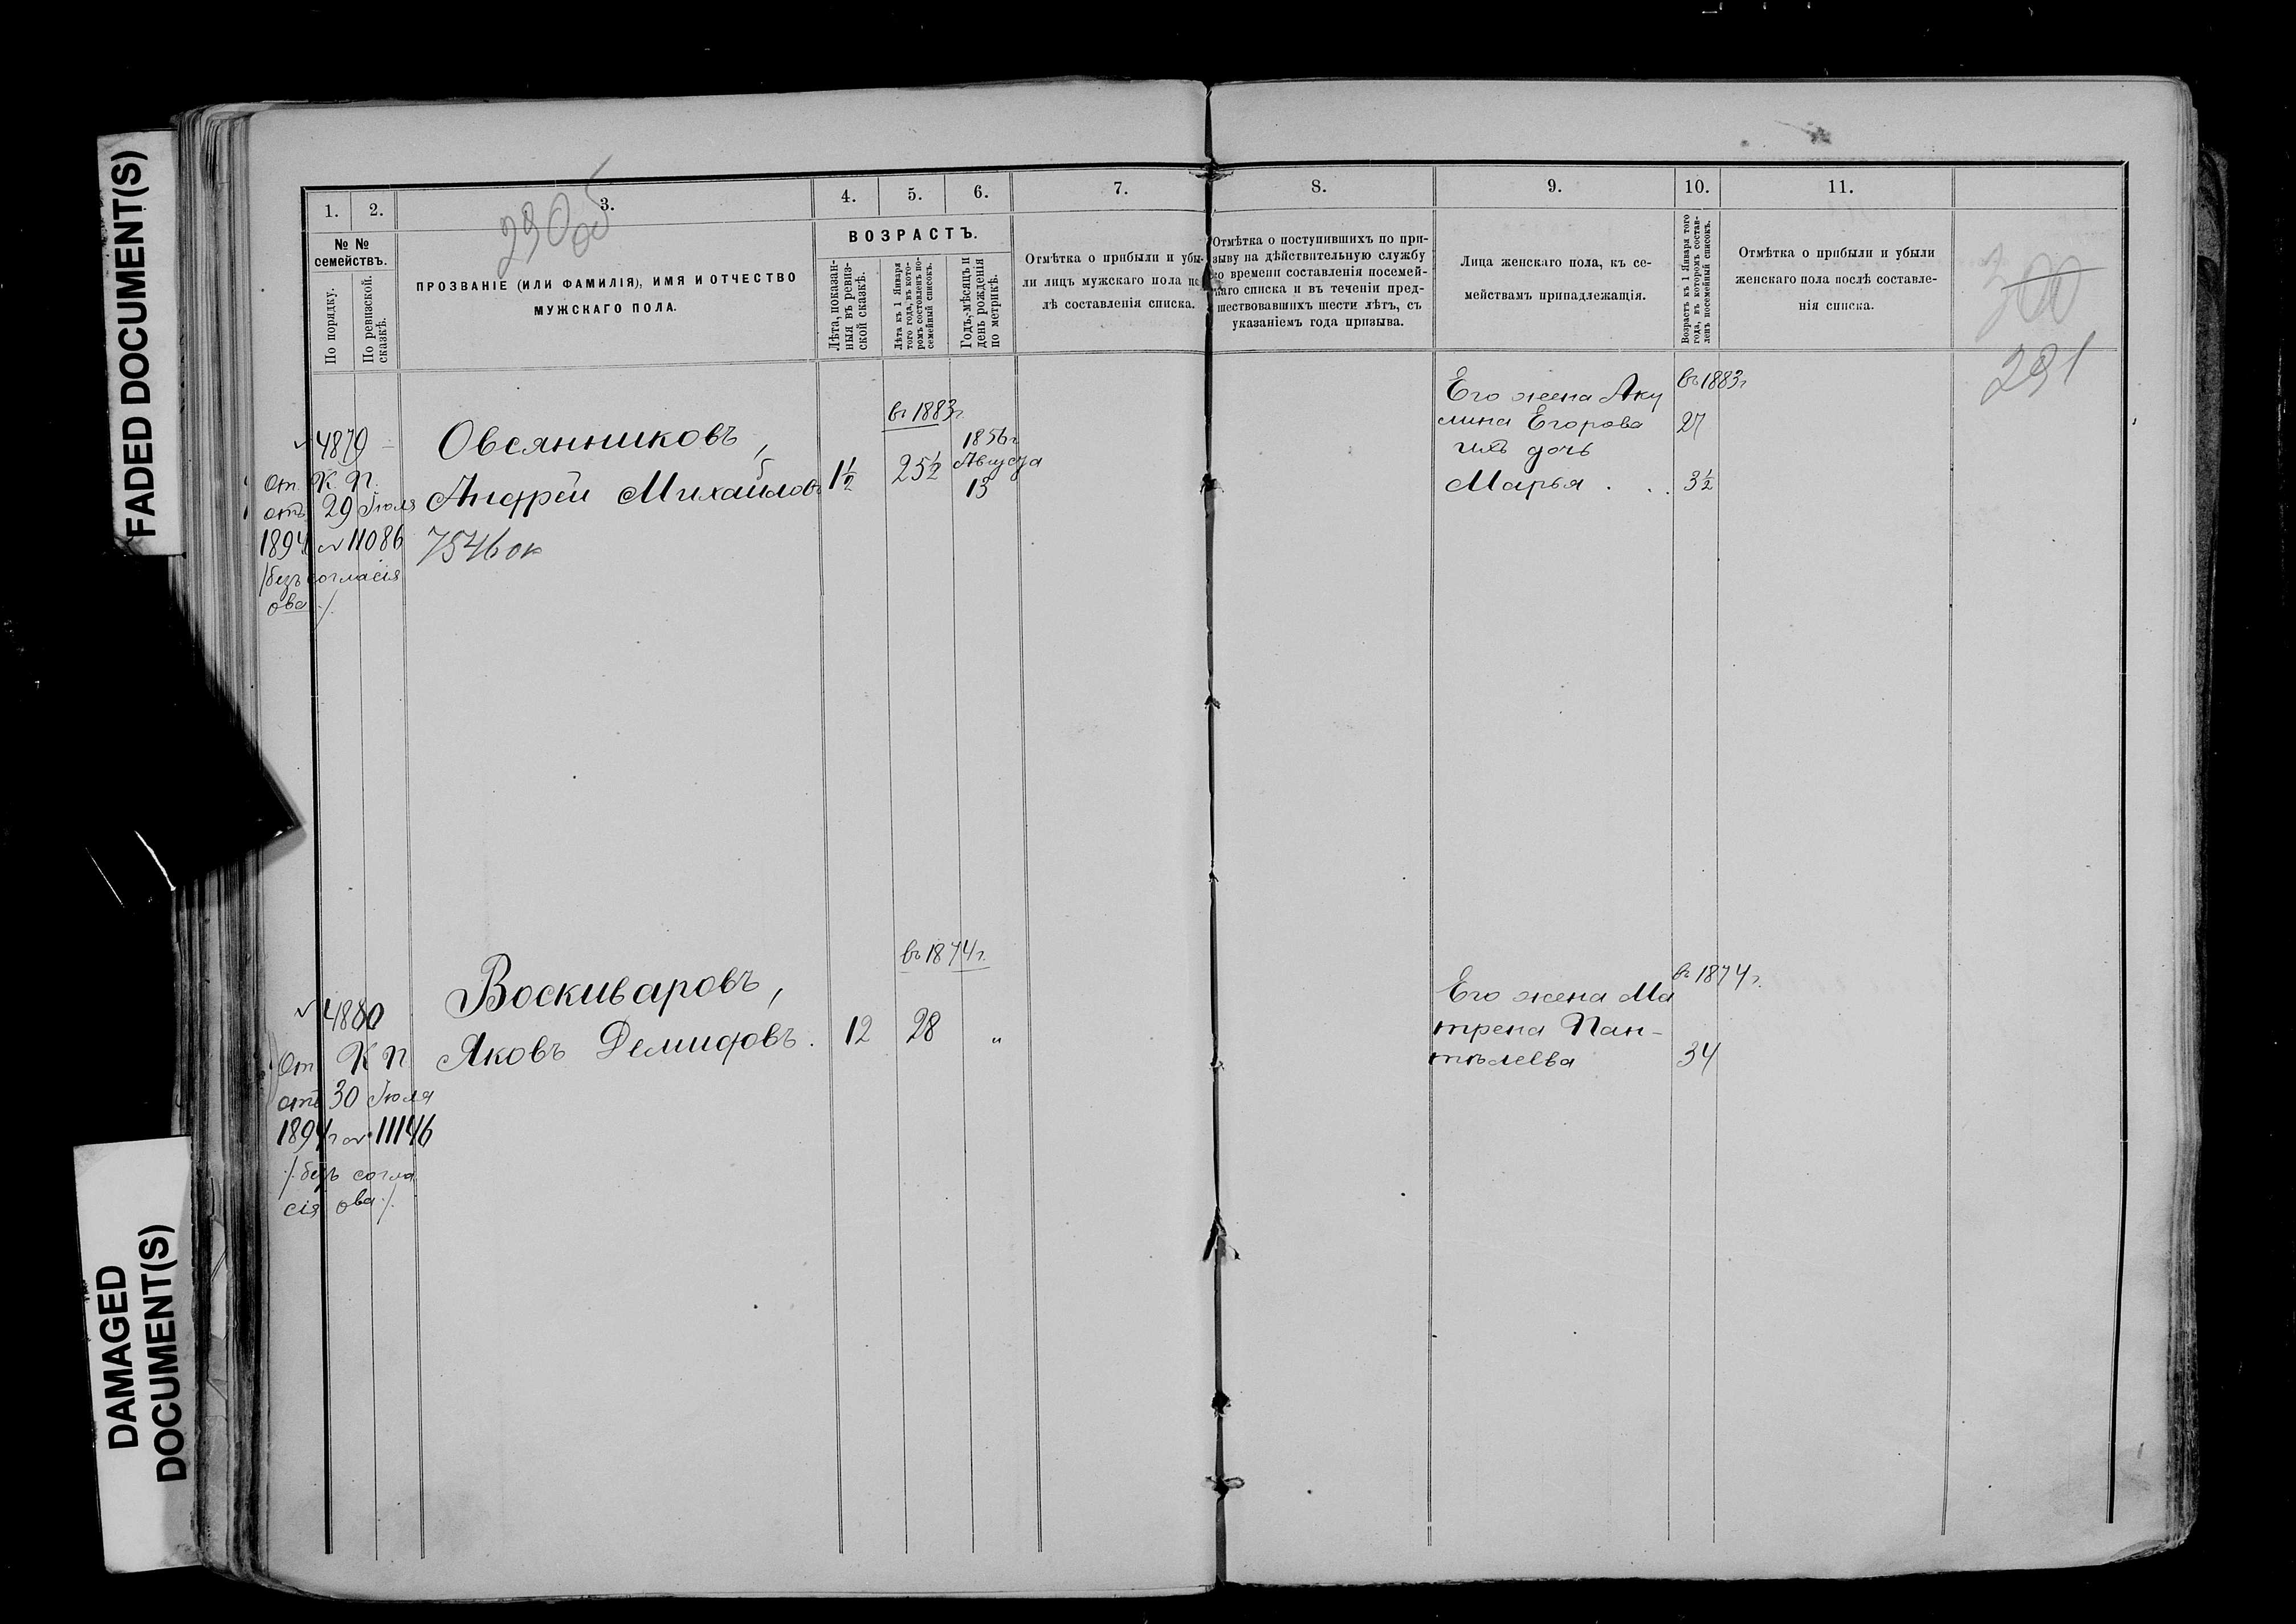 FADED DOCUMENT(S)
DAMAGED
DOCUMENT(S)
290об
1.
2.
3.
4.
5.
6.
7.
8.
9.
10.
11.
№ №
семействъ.
По порядку.
По ревизской.
сказкѣ.
ПРОЗВАНІЕ (ИЛИ ФАМИЛІЯ), ИМЯ И ОТЧЕСТВО
МУЖСКАГО ПОЛА.
ВОЗРАСТЪ.
Лѣта, показан-
ныя въ ревиз-
ской сказкѣ.
Лѣта къ 1 Января
того года, въ кото-
ромъ составленъ по-
семейный списокъ.
Годъ, мѣсяцъ и
день рожденія
по метрикѣ.
Отмѣтка о прибыли и убы-
ли лицъ мужскаго пола по
лѣ составленія списка.
Отмѣтка о поступившихъ по при-
зыву на дѣйствительную службу
со времени составленія посемей-
наго списка и въ теченіи пред-
шествовавшихъ шести лѣтъ, съ
указаніемъ года призыва.
Лица женскаго пола, къ се-
мействамъ принадлежащія.
Возрастъ къ 1 Января того
года, въ которомъ состав-
ленъ посемейный списокъ.
Отмѣтка о прибыли и убыли
женскаго пола послѣ составле-
нія списка.
300
291
4879
От. К. П.
отъ 29 Іюля
1894 № 11086
/безъ согласія
ова./.
Овсянниковъ,
Андрей Михайловъ
7546 ок
1½
въ 1883г.
25½
1856г
Августа
13
Его жена Аку
лина Егорова
ихъ дочь
Марья . . .
въ 1883г
27
3½
4880
От К П
отъ 30 Іюля
1894г № 11146
/. безъ согла
сія ова ./.
Воскиваровъ,
Яковъ Демидовъ.
12
въ 1874г.
28
"
Его жена Ма
трена Пан-
тѣлеева
въ 1874г.
34